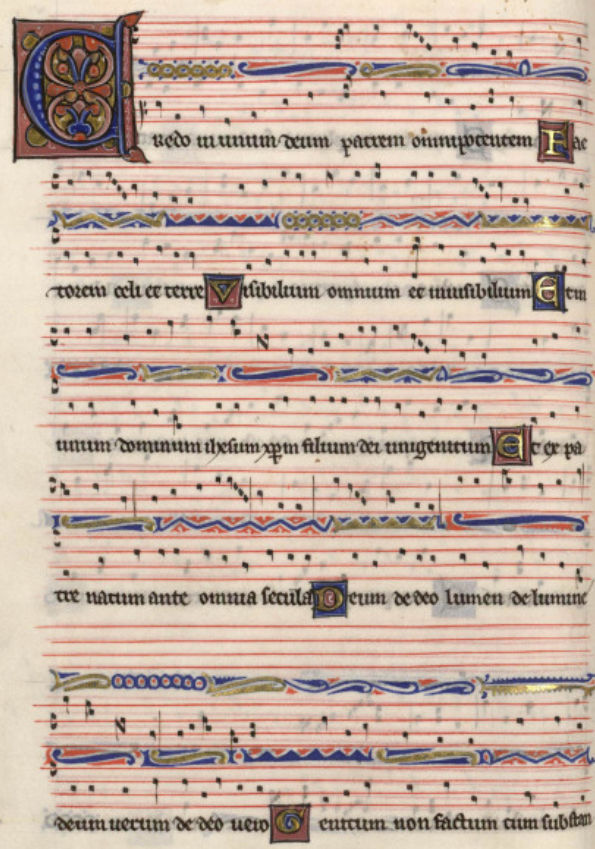 Credo in unum deum patrem omnipotentem Fac
torem celi et terre Visibilium omnium et inuisibilium Et in
unum dominum ihesum xpm filium dei unigenitum Et ex pa
tre natum ante omnia secula Deum de deo lumen de lumine
deum uerum de deo uero Genitum non factum cum substan